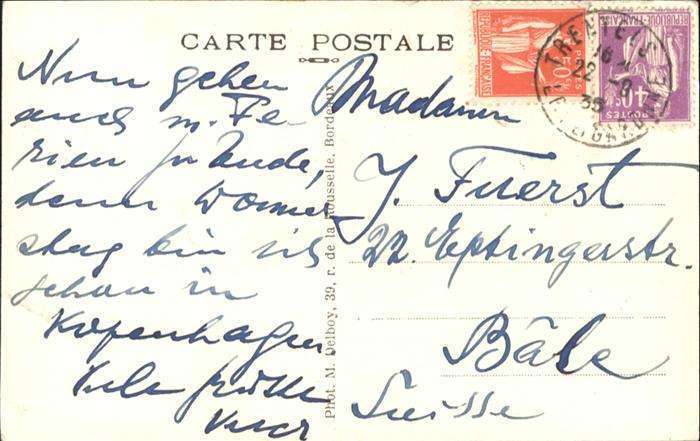 CARTE POSTALE
Nun gehen
auch m. Fe-
rien zu Ende,
denn Donner
stag bin ich
schon in
Kopenhagen.
Viele Grüsse
Phot. M. Delboy, 39, r. de la Rousselle, Bordeaux
Madame
J. Fuerst
22. Eptingerstr.
Bâle
Suisse
REPUBLIQUE FRANÇAISE
POSTES
REPUBLIQUE FRANÇAISE
40c
POSTES
22 - 8
35